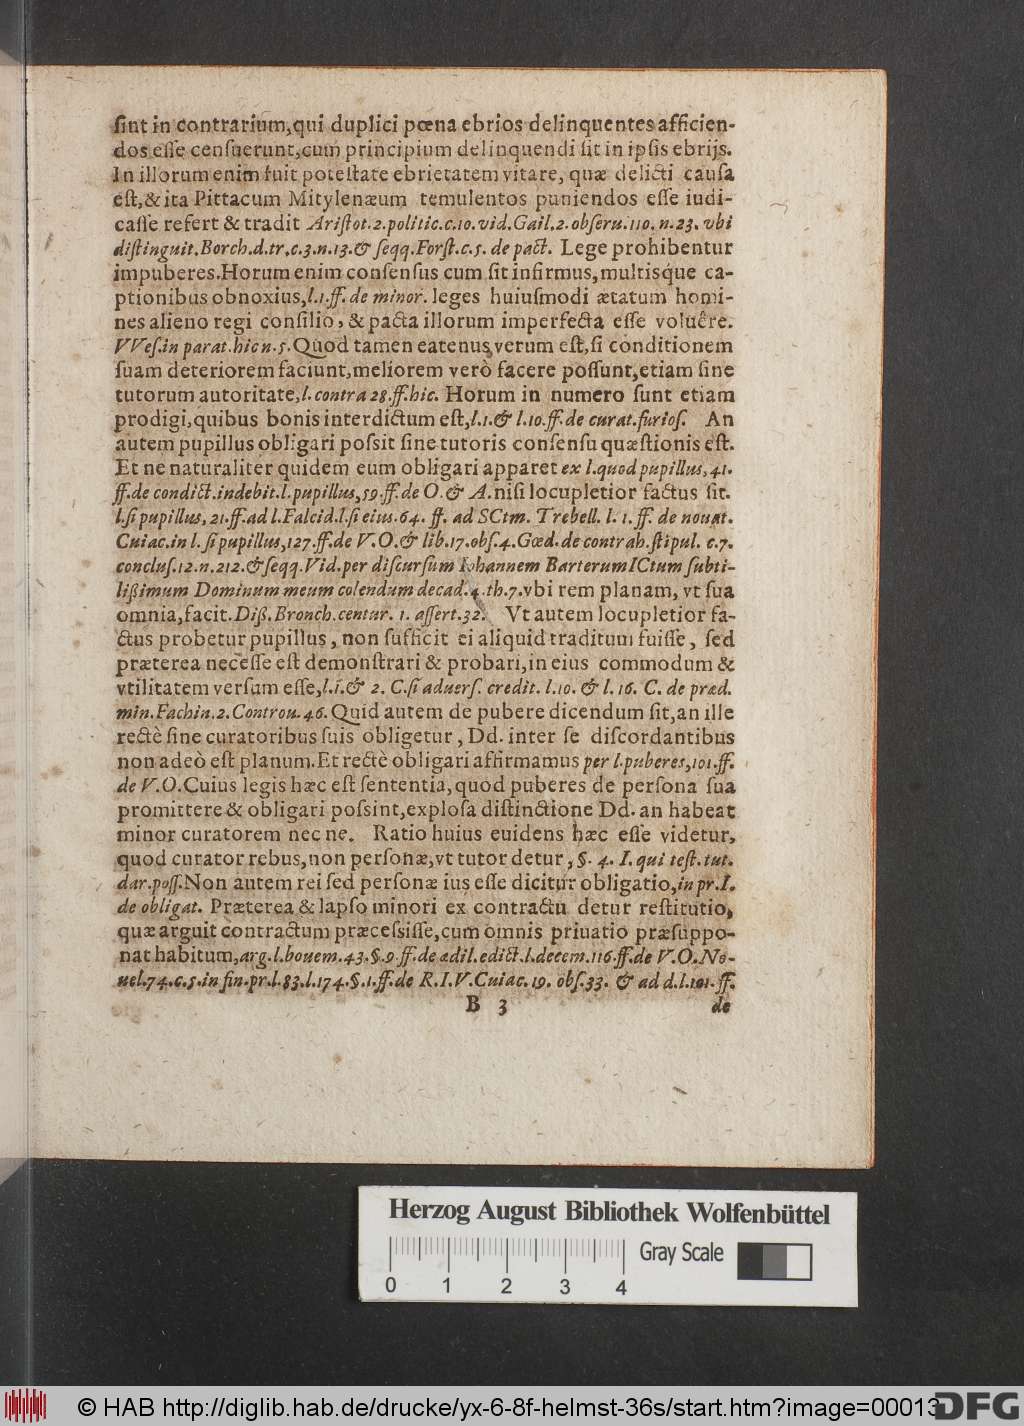 ſint in contrarium,qui duplici pœna ebrios delinquentes afficien-
dos eſſe cenſuerunt,cum principium delinquendi ſit in ipſis ebrijs.
In illorum enim fuit poteſtate ebrietatem vitare, quæ delicti cauſa
eſt,& ita Pittacum Mitylenæum temulentos puniendos eſſe iudi-
caſſe refert & tradit Ariſtot.2.politic.c.10.vid.Gail.2.obſeru.110.n.23.vbi
diſtinguit.Borch.d.tr.c.3.n.13.& ſeqq.Forſt.c.5. de pact. Lege prohibentur
impuberes.Horum enim conſenſus cum ſit infirmus,multisque ca-
ptionibus obnoxius,l.1.ff. de minor. leges huiuſmodi ætatum homi-
nes alieno regi conſilio, & pacta illorum imperfecta eſſe voluêre.
VVeſ.in parat.hic n.5.Quod tamen eatenus verum eſt,ſi conditionem
ſuam deteriorem faciunt,meliorem verò facere poſſunt,etiam ſine
tutorum autoritate,l. contra 28.ff.hic. Horum in numero ſunt etiam
prodigi,quibus bonis interdictum eſt,l.1.& l.10.ff.de curat.furioſ. An
autem pupillus obligari poſsit ſine tutoris conſenſu quæſtionis eſt.
Et ne naturaliter quidem eum obligari apparet ex l.quod pupillus,41.
ff.de condict.indebit.l.pupillus,59.ff.de O.& A.niſi locupletior factus ſit.
l.ſi pupillus, 21.ff.ad l.Falcid.l.ſi eius.64. ff. ad SCtm. Trebell. l. 1. ff. de nouat.
Cuiac.in l. ſi pupillus,127.ff.de V.O.& lib.17.obſ.4.Gœd.de contrah.ſtipul. c.7.
concluſ.12.n.212.& ſeqq.Vid.per diſcurſum Iohannem Barterum ICtum ſubti-
lißimum Dominum meum colendum decad.4.th.7.vbi rem planam, vt ſua
omnia,facit.Diß.Bronch.centur. 1. aſſert.32. Vt autem locupletior fa-
ctus probetur pupillus, non ſufficit ei aliquid traditum fuiſſe, ſed
præterea neceſſe eſt demonſtrari & probari,in eius commodum &
vtilitatem verſum eſſe,l.1.& 2. C.ſi aduerſ. credit. l.10. & l. 16. C. de præd.
min.Fachin.2.Controu.46.Quid autem de pubere dicendum ſit,an ille
rectè ſine curatoribus ſuis obligetur, Dd. inter ſe diſcordantibus
non adeò eſt planum.Et rectè obligari affirmamus per l.puberes,101.ff.
de V.O.Cuius legis hæc eſt ſententia,quod puberes de perſona ſua
promittere & obligari poſsint,exploſa diſtinctione Dd. an habeat
minor curatorem nec ne. Ratio huius euidens hæc eſſe videtur,
quod curator rebus,non perſonæ,vt tutor detur, §. 4. I. qui teſt.tut.
dar.poſſ.Non autem rei ſed perſonæ ius eſſe dicitur obligatio,in pr.I.
de obligat. Præterea & lapſo minori ex contractu detur reſtitutio,
quæ arguit contractum præceſsiſſe,cum omnis priuatio præſuppo-
nat habitum,arg.l.bouem.43.§.9.ff.de ædil.edict.l.decem.116.ff.de V.O.No-
uel.74.c.5.in fin.pr.l.83.l.174.§.1.ff.de R.I.V.Cuiac.19. obſ.33. & ad d.l.101.ff.
B 3 de
Herzog August Bibliothek Wolfenbüttel
Gray Scale
0 1 2 3 4
© HAB http://diglib.hab.de/drucke/yx-6-8f-helmst-36s/start.htm?image=00013
DFG